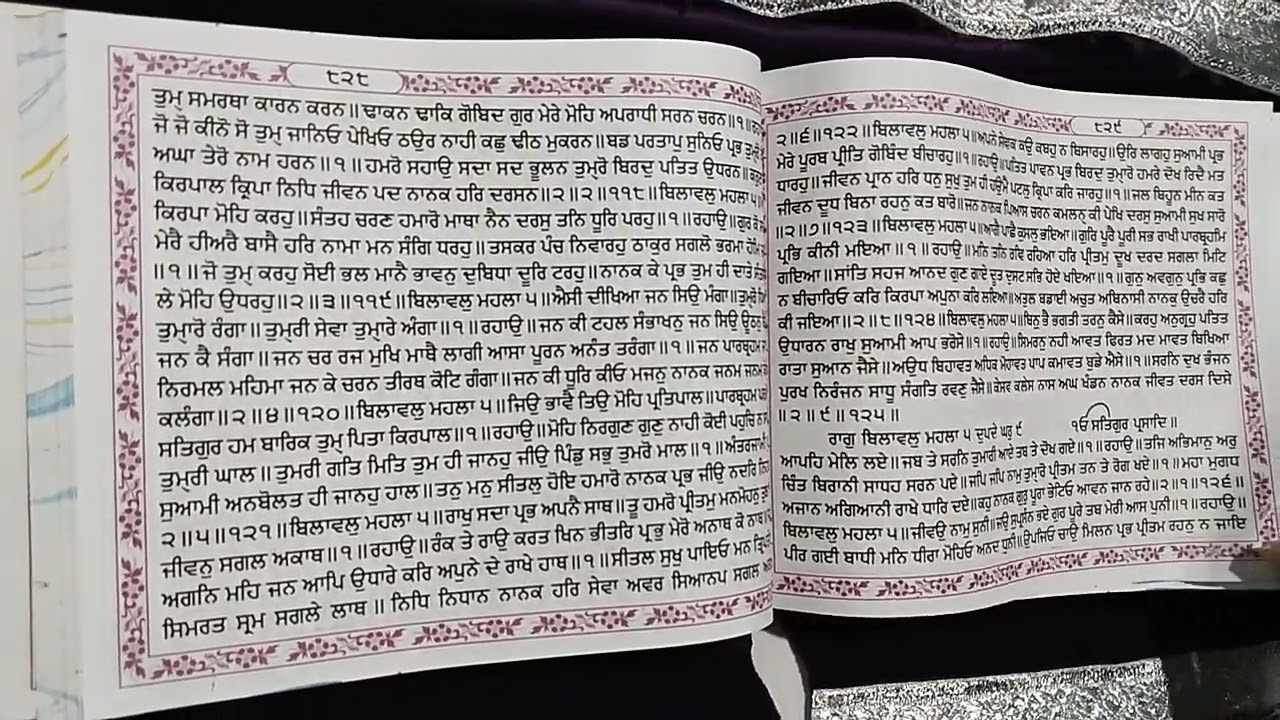 ੮੨੮
ਤੁਮ੍ ਸਮਰਥਾ ਕਾਰਨ ਕਰਨ॥ਢਾਕਨ ਢਾਕਿ ਗੋਬਿਦ ਗੁਰ ਮੇਰੇ ਮੋਹਿ ਅਪਰਾਧੀ ਸਰਨ ਚਰਨ॥੧॥
ਜੋ ਜੋ ਕੀਨੋ ਸੋ ਤੁਮ੍ ਜਾਨਿਓ ਪੇਖਿਓ ਠਉਰ ਨਾਹੀ ਕਛੁ ਢੀਠ ਮੁਕਰਨ॥ਬਡ ਪਰਤਾਪੁ ਸੁਨਿਓ ਪ੍ਰਭ
ਅਘਾ ਤੇਰੋ ਨਾਮ ਹਰਨ॥੧॥ ਹਮਰੋ ਸਹਾਉ ਸਦਾ ਸਦ ਭੂਲਨ ਤੁਮ੍ਰੋ ਬਿਰਦੁ ਪਤਿਤ ਉਧਰਨ॥
ਕਿਰਪਾਲ ਕ੍ਰਿਪਾ ਨਿਧਿ ਜੀਵਨ ਪਦ ਨਾਨਕ ਹਰਿ ਦਰਸਨ॥੨॥੨॥੧੧੮॥ਬਿਲਾਵਲੁ ਮਹਲਾ ੫॥
ਕਿਰਪਾ ਮੋਹਿ ਕਰਹੁ॥ਸੰਤਹ ਚਰਣ ਹਮਾਰੋ ਮਾਥਾ ਨੈਨ ਦਰਸੁ ਤਨਿ ਧੂਰਿ ਪਰਹੁ॥੧॥ਰਹਾਉ॥ਗੁਰ ਕੋ
ਮੇਰੈ ਹੀਅਰੈ ਬਾਸੈ ਹਰਿ ਨਾਮਾ ਮਨ ਸੰਗਿ ਧਰਹੁ॥ਤਸਕਰ ਪੰਚ ਨਿਵਾਰਹੁ ਠਾਕੁਰ ਸਗਲੋ ਭਰਮਾ
॥੧॥ਜੋ ਤੁਮ੍ ਕਰਹੁ ਸੋਈ ਭਲ ਮਾਨੈ ਭਾਵਨੁ ਦੁਬਿਧਾ ਦੂਰਿ ਟਰਹੁ॥ਨਾਨਕ ਕੇ ਪ੍ਰਭ ਤੁਮ ਹੀ ਦਾਤੇ
ਲੇ ਮੋਹਿ ਉਧਰਹੁ॥੨॥੩॥੧੧੯॥ਬਿਲਾਵਲੁ ਮਹਲਾ ੫॥ਐਸੀ ਦੀਖਿਆ ਜਨ ਸਿਉ ਮੰਗਾ॥ਤੁਮ੍ਰੋ
ਤੁਮ੍ਾਰੋ ਰੰਗਾ॥ਤੁਮ੍ਰੀ ਸੇਵਾ ਤੁਮ੍ਾਰੇ ਅੰਗਾ॥੧॥ਰਹਾਉ॥ਜਨ ਕੀ ਟਹਲ ਸੰਭਾਖਨੁ ਜਨ ਸਿਉ
ਜਨ ਕੈ ਸੰਗਾ॥ਜਨ ਚਰ ਰਜ ਮੁਖਿ ਮਾਥੈ ਲਾਗੀ ਆਸਾ ਪੂਰਨ ਅਨੰਤ ਤਰੰਗਾ॥੧॥ਜਨ ਪਾਰਬ੍ਰਹਮ
ਨਿਰਮਲ ਮਹਿਮਾ ਜਨ ਕੇ ਚਰਨ ਤੀਰਥ ਕੋਟਿ ਗੰਗਾ॥ਜਨ ਕੀ ਧੂਰਿ ਕੀਓ ਮਜਨੁ ਨਾਨਕ ਜਨਮ ਜਨਮ
ਕਲੰਗਾ॥੨॥੪॥੧੨੦॥ਬਿਲਾਵਲੁ ਮਹਲਾ ੫॥ਜਿਉ ਭਾਵੈ ਤਿਉ ਮੋਹਿ ਪ੍ਰਤਿਪਾਲ॥ਪਾਰਬ੍ਰਹਮ
ਸਤਿਗੁਰ ਹਮ ਬਾਰਿਕ ਤੁਮ੍ ਪਿਤਾ ਕਿਰਪਾਲ॥੧॥ਰਹਾਉ॥ਮੋਹਿ ਨਿਰਗੁਣ ਗੁਣੁ ਨਾਹੀ ਕੋਈ ਪਹੁਚਿ ਨ
ਤੁਮ੍ਰੀ ਘਾਲ॥ਤੁਮਰੀ ਗਤਿ ਮਿਤਿ ਤੁਮ ਹੀ ਜਾਨਹੁ ਜੀਉ ਪਿੰਡੁ ਸਭੁ ਤੁਮਰੋ ਮਾਲ॥੧॥ਅੰਤਰਜਾਮੀ
ਸੁਆਮੀ ਅਨਬੋਲਤ ਹੀ ਜਾਨਹੁ ਹਾਲ॥ਤਨੁ ਮਨੁ ਸੀਤਲੁ ਹੋਇ ਹਮਾਰੋ ਨਾਨਕ ਪ੍ਰਭ ਜੀਉ ਨਦਰਿ
੨॥੫॥੧੨੧॥ਬਿਲਾਵਲੁ ਮਹਲਾ ੫॥ਰਾਖੁ ਸਦਾ ਪ੍ਰਭ ਅਪਨੈ ਸਾਥ॥ਤੂ ਹਮਰੋ ਪ੍ਰੀਤਮੁ ਮਨਮੋਹਨੁ
ਜੀਵਨੁ ਸਗਲ ਅਕਾਥ॥੧॥ਰਹਾਉ॥ਰੰਕ ਤੇ ਰਾਉ ਕਰਤ ਖਿਨ ਭੀਤਰਿ ਪ੍ਰਭੁ ਮੇਰੋ ਅਨਾਥ ਕੋ ਨਾਥ॥
ਅਗਨਿ ਮਹਿ ਜਨ ਆਪਿ ਉਧਾਰੇ ਕਰਿ ਅਪੁਨੇ ਦੇ ਰਾਖੇ ਹਾਥ॥੧॥ਸੀਤਲ ਸੁਖੁ ਪਾਇਓ ਮਨ
ਸਿਮਰਤ ਸ੍ਰਮ ਸਗਲੇ ਲਾਥ॥ ਨਿਧਿ ਨਿਧਾਨ ਨਾਨਕ ਹਰਿ ਸੇਵਾ ਅਵਰ ਸਿਆਨਪ ਸਗਲ
੮੨੯
੨॥੬॥੧੨੨॥ਬਿਲਾਵਲੁ ਮਹਲਾ ੫॥ਅਪਨੇ ਸੇਵਕ ਕਉ ਕਬਹੁ ਨ ਬਿਸਾਰਹੁ॥ਉਰਿ ਲਾਗਹੁ ਸੁਆਮੀ ਪ੍ਰਭ
ਮੇਰੇ ਪੂਰਬ ਪ੍ਰੀਤਿ ਗੋਬਿੰਦ ਬੀਚਾਰਹੁ॥੧॥ਰਹਾਉ॥ਪਤਿਤ ਪਾਵਨ ਪ੍ਰਭ ਬਿਰਦੁ ਤੁਮ੍ਾਰੋ ਹਮਰੇ ਦੋਖ ਰਿਦੈ ਮਤ
ਧਾਰਹੁ॥ਜੀਵਨ ਪ੍ਰਾਨ ਹਰਿ ਧਨੁ ਸੁਖੁ ਤੁਮ ਹੀ ਹਉਮੈ ਪਟਲੁ ਕ੍ਰਿਪਾ ਕਰਿ ਜਾਰਹੁ॥੧॥ਜਲ ਬਿਹੂਨ ਮੀਨ ਕਤ
ਜੀਵਨ ਦੂਧ ਬਿਨਾ ਰਹਨੁ ਕਤ ਬਾਰੋ॥ਜਨ ਨਾਨਕ ਪਿਆਸ ਚਰਨ ਕਮਲਨ੍ ਕੀ ਪੇਖਿ ਦਰਸੁ ਸੁਆਮੀ ਸੁਖ ਸਾਰੋ
॥੨॥੭॥੧੨੩॥ਬਿਲਾਵਲੁ ਮਹਲਾ ੫॥ਆਗੈ ਪਾਛੈ ਕੁਸਲੁ ਭਇਆ॥ਗੁਰਿ ਪੂਰੈ ਪੂਰੀ ਸਭ ਰਾਖੀ ਪਾਰਬ੍ਰਹਮਿ
ਪ੍ਰਭਿ ਕੀਨੀ ਮਇਆ॥੧॥ ਰਹਾਉ॥ਮਨਿ ਤਨਿ ਰਵਿ ਰਹਿਆ ਹਰਿ ਪ੍ਰੀਤਮੁ ਦੂਖ ਦਰਦ ਸਗਲਾ ਮਿਟਿ
ਗਇਆ॥ਸਾਂਤਿ ਸਹਜ ਆਨਦ ਗੁਣ ਗਾਏ ਦੂਤ ਦੁਸਟ ਸਭਿ ਹੋਏ ਖਇਆ॥੧॥ਗੁਨੁ ਅਵਗੁਨੁ ਪ੍ਰਭਿ ਕਛੁ
ਨ ਬੀਚਾਰਿਓ ਕਰਿ ਕਿਰਪਾ ਅਪੁਨਾ ਕਰਿ ਲਇਆ॥ਅਤੁਲ ਬਡਾਈ ਅਚੁਤ ਅਬਿਨਾਸੀ ਨਾਨਕੁ ਉਚਰੈ ਹਰਿ
ਕੀ ਜਇਆ॥੨॥੮॥੧੨੪॥ਬਿਲਾਵਲੁ ਮਹਲਾ ੫॥ਬਿਨੁ ਭੈ ਭਗਤੀ ਤਰਨੁ ਕੈਸੇ॥ਕਰਹੁ ਅਨੁਗ੍ਰਹੁ ਪਤਿਤ
ਉਧਾਰਨ ਰਾਖੁ ਸੁਆਮੀ ਆਪ ਭਰੋਸੇ॥੧॥ਰਹਾਉ॥ਸਿਮਰਨੁ ਨਹੀ ਆਵਤ ਫਿਰਤ ਮਦ ਮਾਵਤ ਬਿਖਿਆ
ਰਾਤਾ ਸੁਆਨ ਜੈਸੇ॥ਅਉਧ ਬਿਹਾਵਤ ਅਧਿਕ ਮੋਹਾਵਤ ਪਾਪ ਕਮਾਵਤ ਬੁਡੇ ਐਸੇ॥੧॥ਸਰਨਿ ਦੁਖ ਭੰਜਨ
ਪੁਰਖ ਨਿਰੰਜਨ ਸਾਧੂ ਸੰਗਤਿ ਰਵਣੁ ਜੈਸੇ॥ਕੇਸਵ ਕਲੇਸ ਨਾਸ ਅਘ ਖੰਡਨ ਨਾਨਕ ਜੀਵਤ ਦਰਸ ਦਿਸੇ
॥੨॥੯॥੧੨੫॥
ਰਾਗੁ ਬਿਲਾਵਲੁ ਮਹਲਾ ੫ ਦੁਪਦੇ ਘਰੁ ੯ ੴ ਸਤਿਗੁਰ ਪ੍ਰਸਾਦਿ॥
ਆਪਹਿ ਮੇਲਿ ਲਏ॥ਜਬ ਤੇ ਸਰਨਿ ਤੁਮਾਰੀ ਆਏ ਤਬ ਤੇ ਦੋਖ ਗਏ॥੧॥ਰਹਾਉ॥ਤਜਿ ਅਭਿਮਾਨੁ ਅਰੁ
ਚਿੰਤ ਬਿਰਾਨੀ ਸਾਧਹ ਸਰਨ ਪਏ॥ਜਪਿ ਜਪਿ ਨਾਮੁ ਤੁਮ੍ਾਰੋ ਪ੍ਰੀਤਮ ਤਨ ਤੇ ਰੋਗ ਖਏ॥੧॥ਮਹਾ ਮੁਗਧ
ਅਜਾਨ ਅਗਿਆਨੀ ਰਾਖੇ ਧਾਰਿ ਦਏ॥ਕਹੁ ਨਾਨਕ ਗੁਰੁ ਪੂਰਾ ਭੇਟਿਓ ਆਵਨ ਜਾਨ ਰਹੇ॥੨॥੧॥੧੨੬॥
ਬਿਲਾਵਲੁ ਮਹਲਾ ੫॥ਜੀਵਉ ਨਾਮੁ ਸੁਨੀ॥ਜਉ ਸੁਪ੍ਰਸੰਨ ਭਏ ਗੁਰ ਪੂਰੇ ਤਬ ਮੇਰੀ ਆਸ ਪੁਨੀ॥੧॥ਰਹਾਉ॥
ਪੀਰ ਗਈ ਬਾਧੀ ਮਨਿ ਧੀਰਾ ਮੋਹਿਓ ਅਨਦ ਧੁਨੀ॥ਉਪਜਿਓ ਚਾਉ ਮਿਲਨ ਪ੍ਰਭ ਪ੍ਰੀਤਮ ਰਹਨੁ ਨ ਜਾਇ